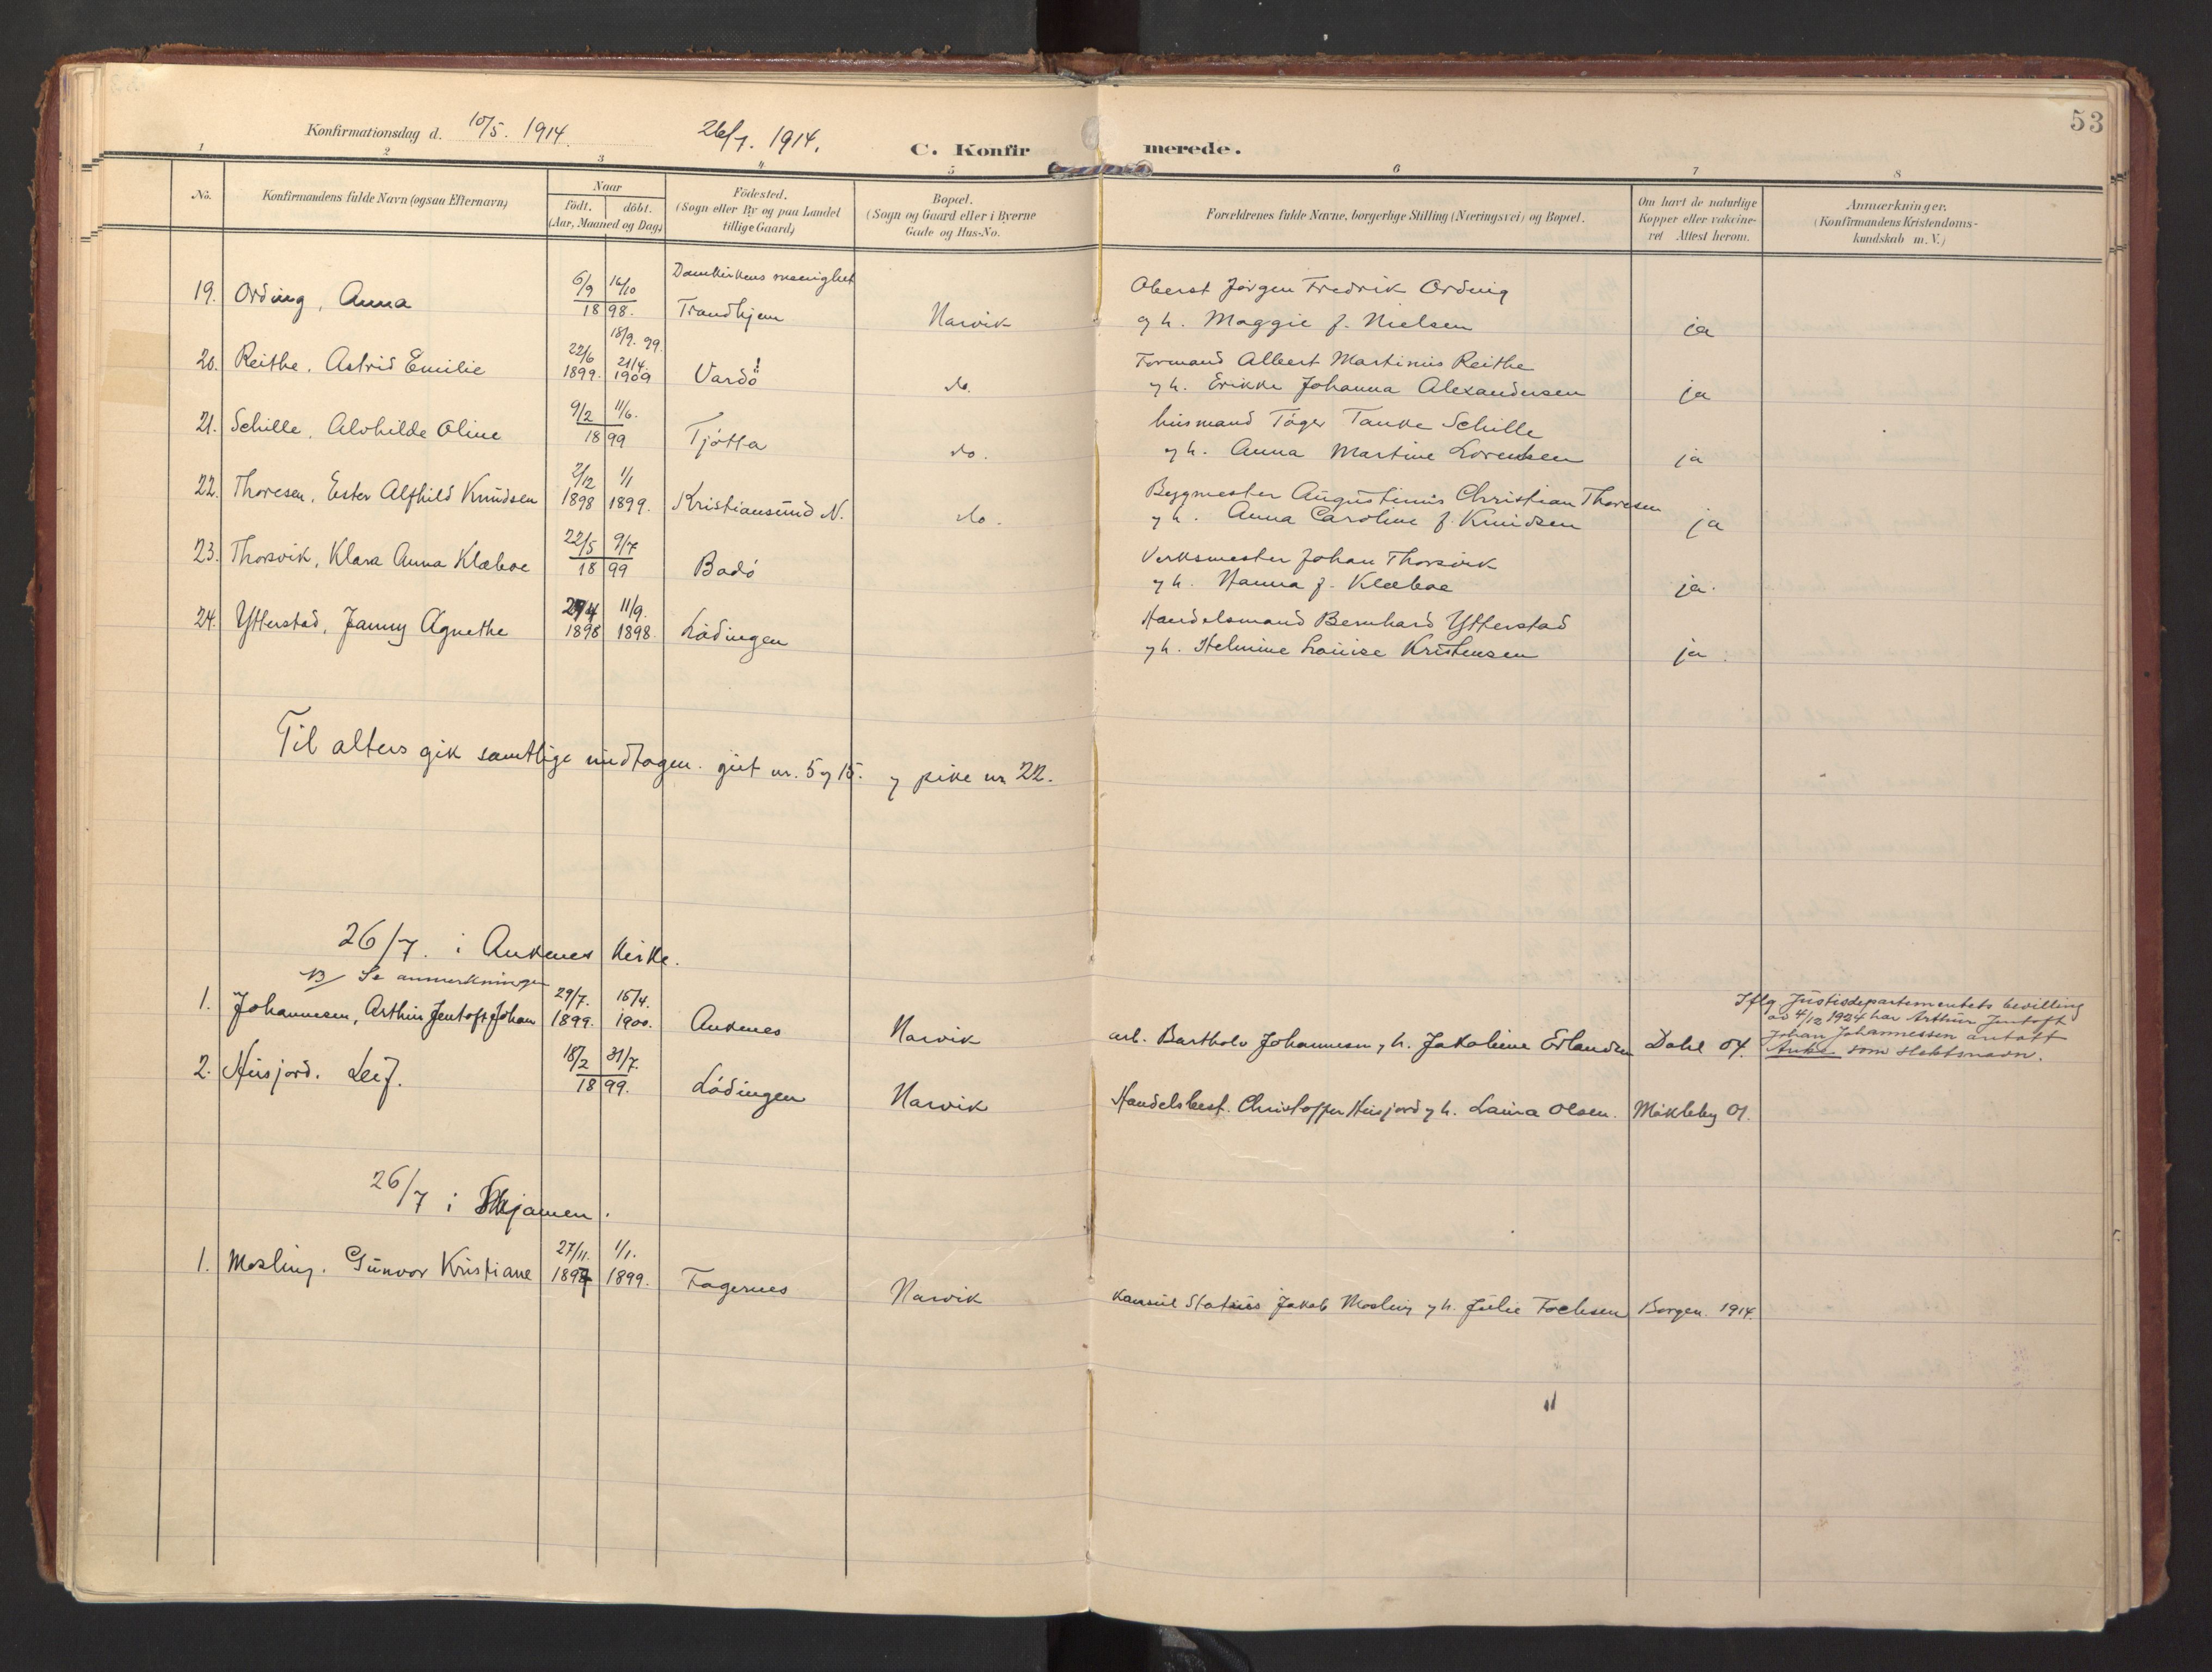 53
Konfirmationsdag d. 10/5. 1914. 26/7. 1914.
C. Konfirmerede.
1 2 3 4 5 6 7 8
No.
Konfirmandens fulde Navn (ogsaa Efternavn)
Naar
födt. döbt.
(Aar, Maaned og Dag)
Födested.
(Sogn eller By og paa Landet
tillige Gaard)
Bopæl.
(Sogn og Gaard eller i Byerne
Gade og Hus-No.
Forældrenes fulde Navne, borgerlige Stilling (Næringsvei) og Bopæl.
Om havt de naturlige
Kopper eller vakcine-
ret Attest herom.
Anmærkninger.
(Konfirmandens Kristendoms-
kundskab m. V.)
19. Ording, Anna 6/9 16/10 1898. Domkirkens menighet
Trondhjem Narvik Oberst Jørgen Fredrik Ording
og h. Maggie f. Nielsen ja
20. Reithe, Astrid Emilie 22/6 1899. 18/9. 99. 21/4. 1909 Vardö! do. Formand Albert Martinius Reithe
og h. Erikke Johanna Alexandersen ja
21. Schille, Alvhilde Oline 9/2 11/6. 1899 Tjötta do. husmand Töger Tanke Schille
og h. Anna Martine Lorentsen ja
22. Thoresen, Ester Alfhild Knudsen 2/12 1898 1/1 1899. Kristiansund N. do. Byggmester Augustinus Christian Thoresen
og h. Anna Caroline f. Knudsen ja
23. Thorsvik, Klara Anna Klæboe 22/5 9/7 1899 Bodö Verksmester Johan Thorsvik
og h. Hanna f. Klæboe ja.
24. Ytterstad, Jenny Agnethe 29/4 1898 11/9. 1898. Lödingen Handelsmand Bernhard Ytterstad
og h. Helmine Louise Kristensen ja.
Til alters gik samtlige undtagen. gut nr. 5 og 15. og pike nr 22.
26/7. i Ankenes kirke.
NB Se anmerkningen
1. Johannesen, Arthur Jentoft Johan 29/7. 1899. 15/4. 1900. Ankenes Narvik arb. Bartholo Johannesen og h. Jakobine Erlandsen Dahl 04.
Iflg. Justisdepartementets bevilling
av 4/12 1924 har Arthur Jentoft
Johan Johannessen antatt
Anke som slektsnavn.
2. Husjord. Leif. 18/2 31/7. 1899. Lödingen Narvik Handelsbest. Christoffer Husjord og h. Laura Olsen. Mökleby 01.
26/7 i Skjomen.
1. Mosling. Gunvor Kristiane 27/11. 1897 1/1. 1899. Fagernes Narvik Konsul Statius Jakob Mosling og h. Julie Fochsen Borgen. 1914.